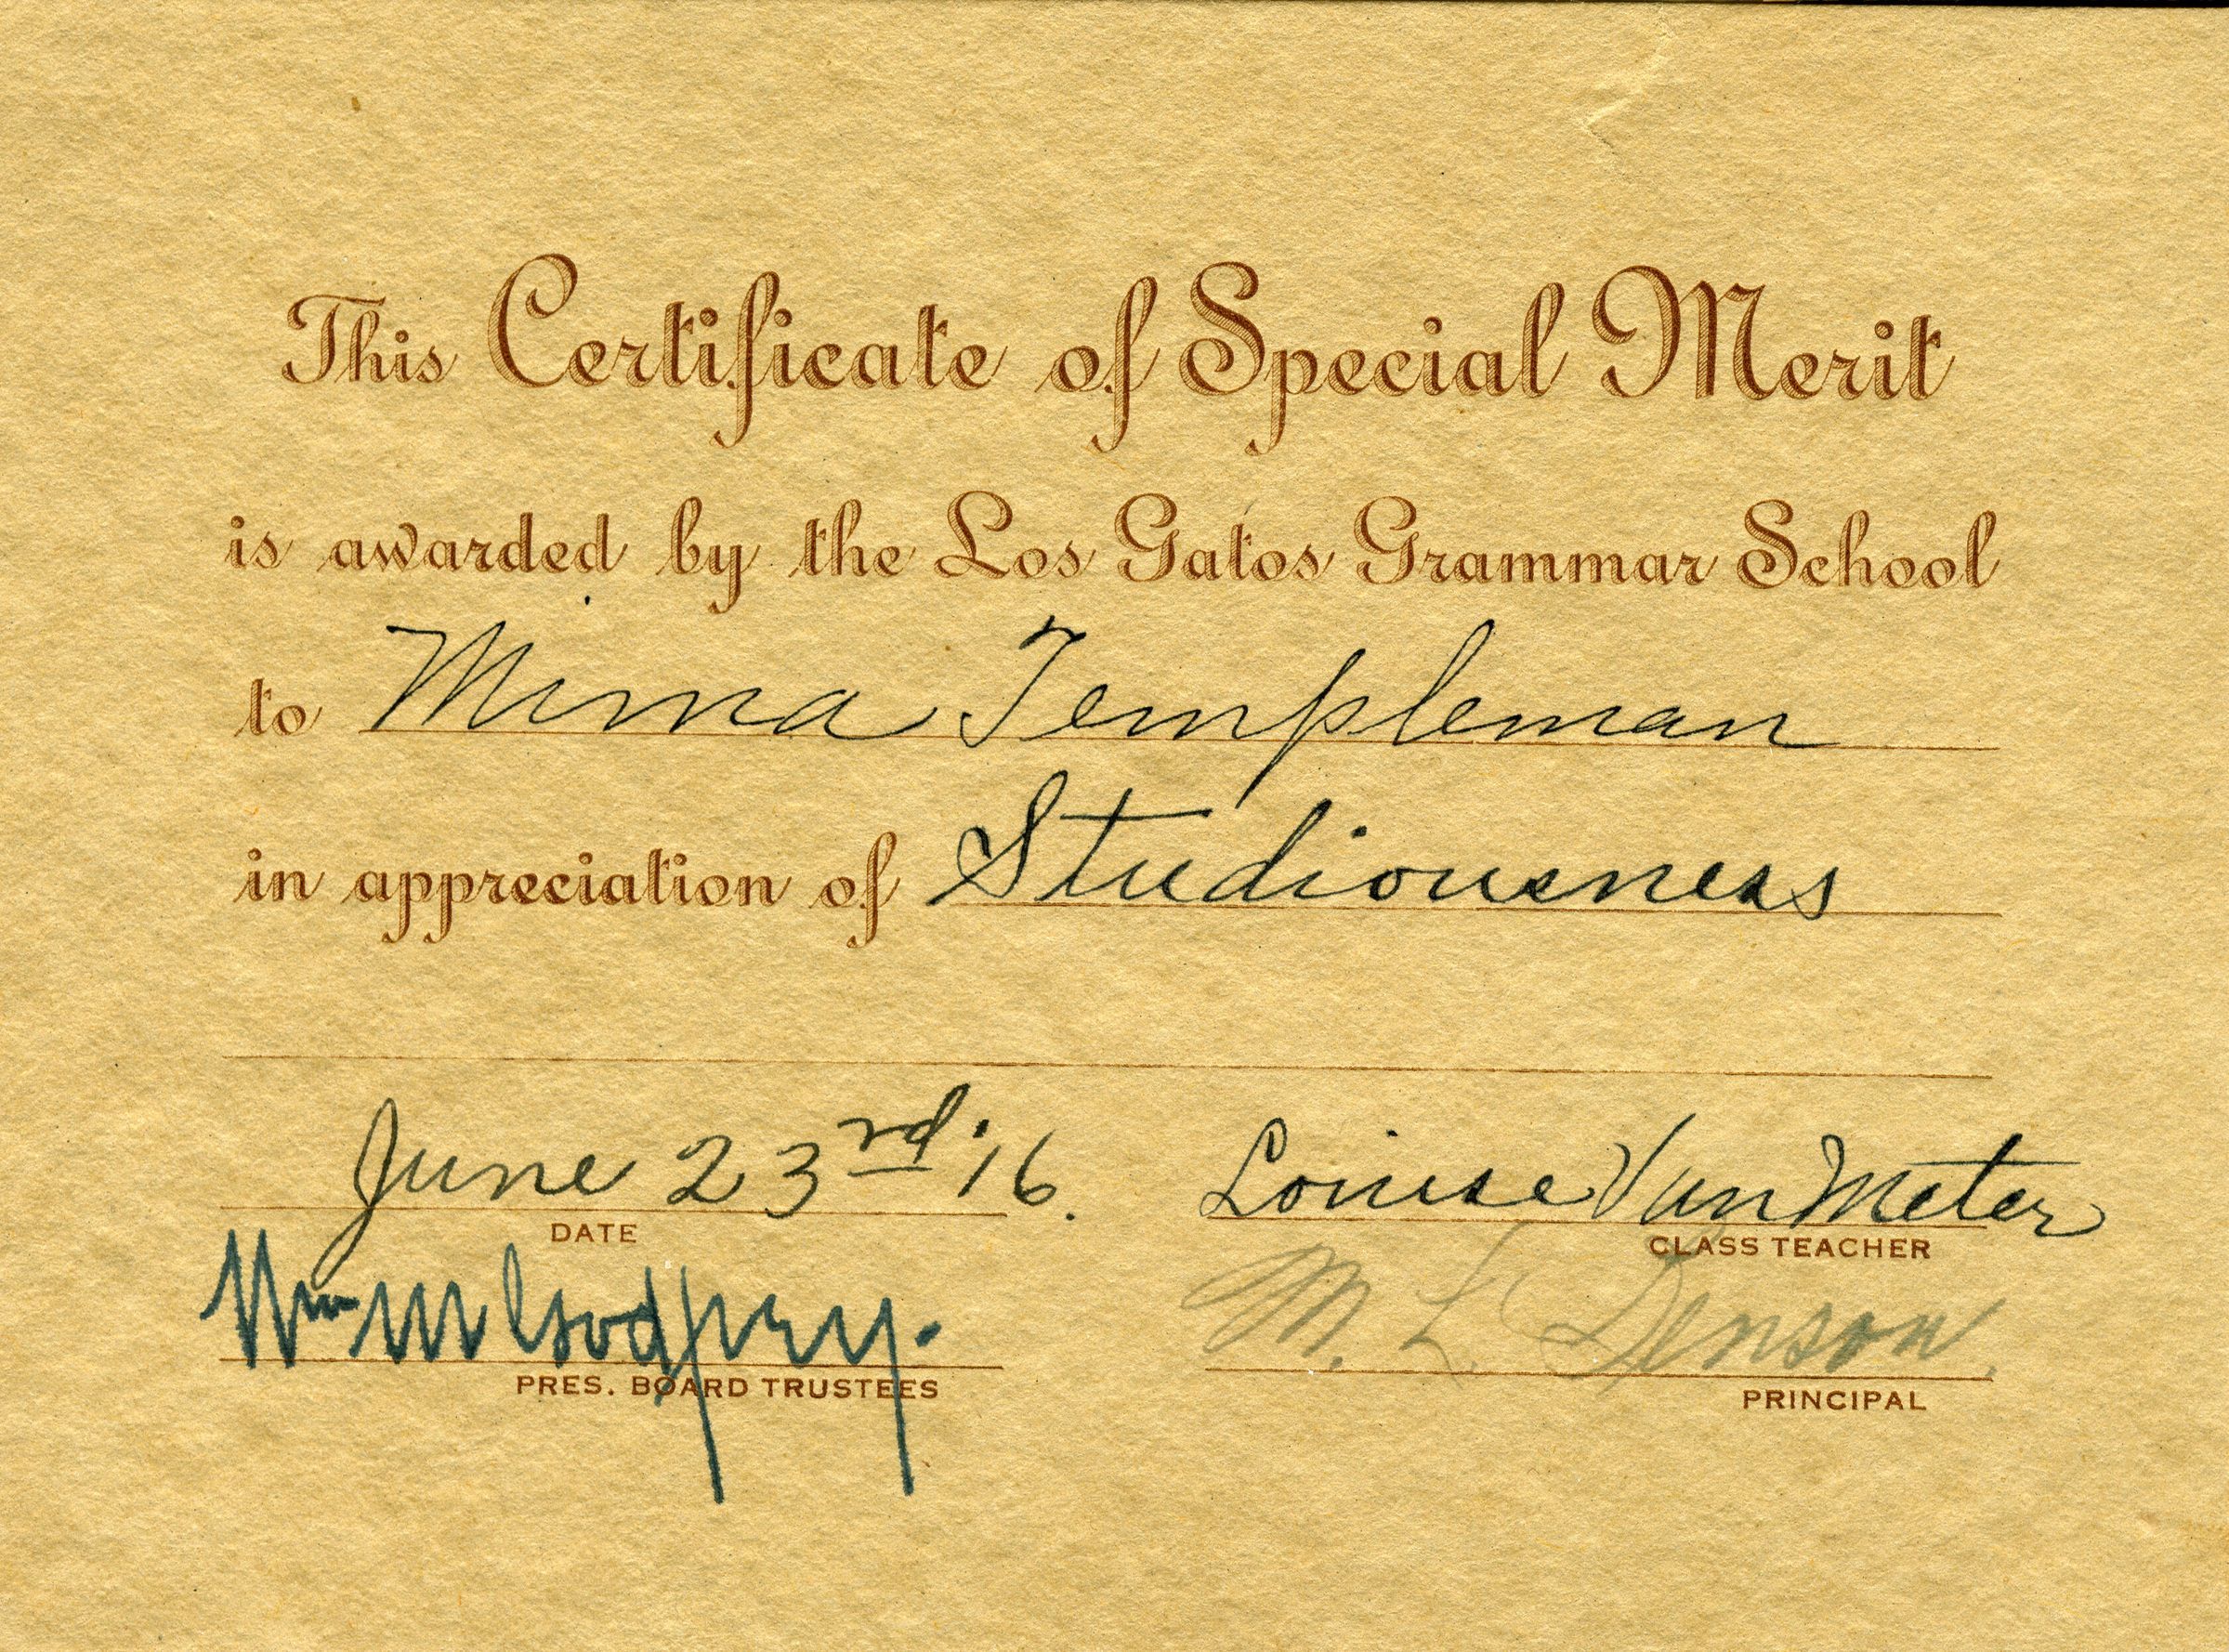 This Certificate of Special Merit
is awarded by the Los Gatos Grammar School
to Mima Templeman
in appreciation of Studiousness
June 23rd '16. Louise Van Meter
DATE CLASS TEACHER
Wm M Godfrey. M. L. Denson.
PRES. BOARD TRUSTEES PRINCIPAL